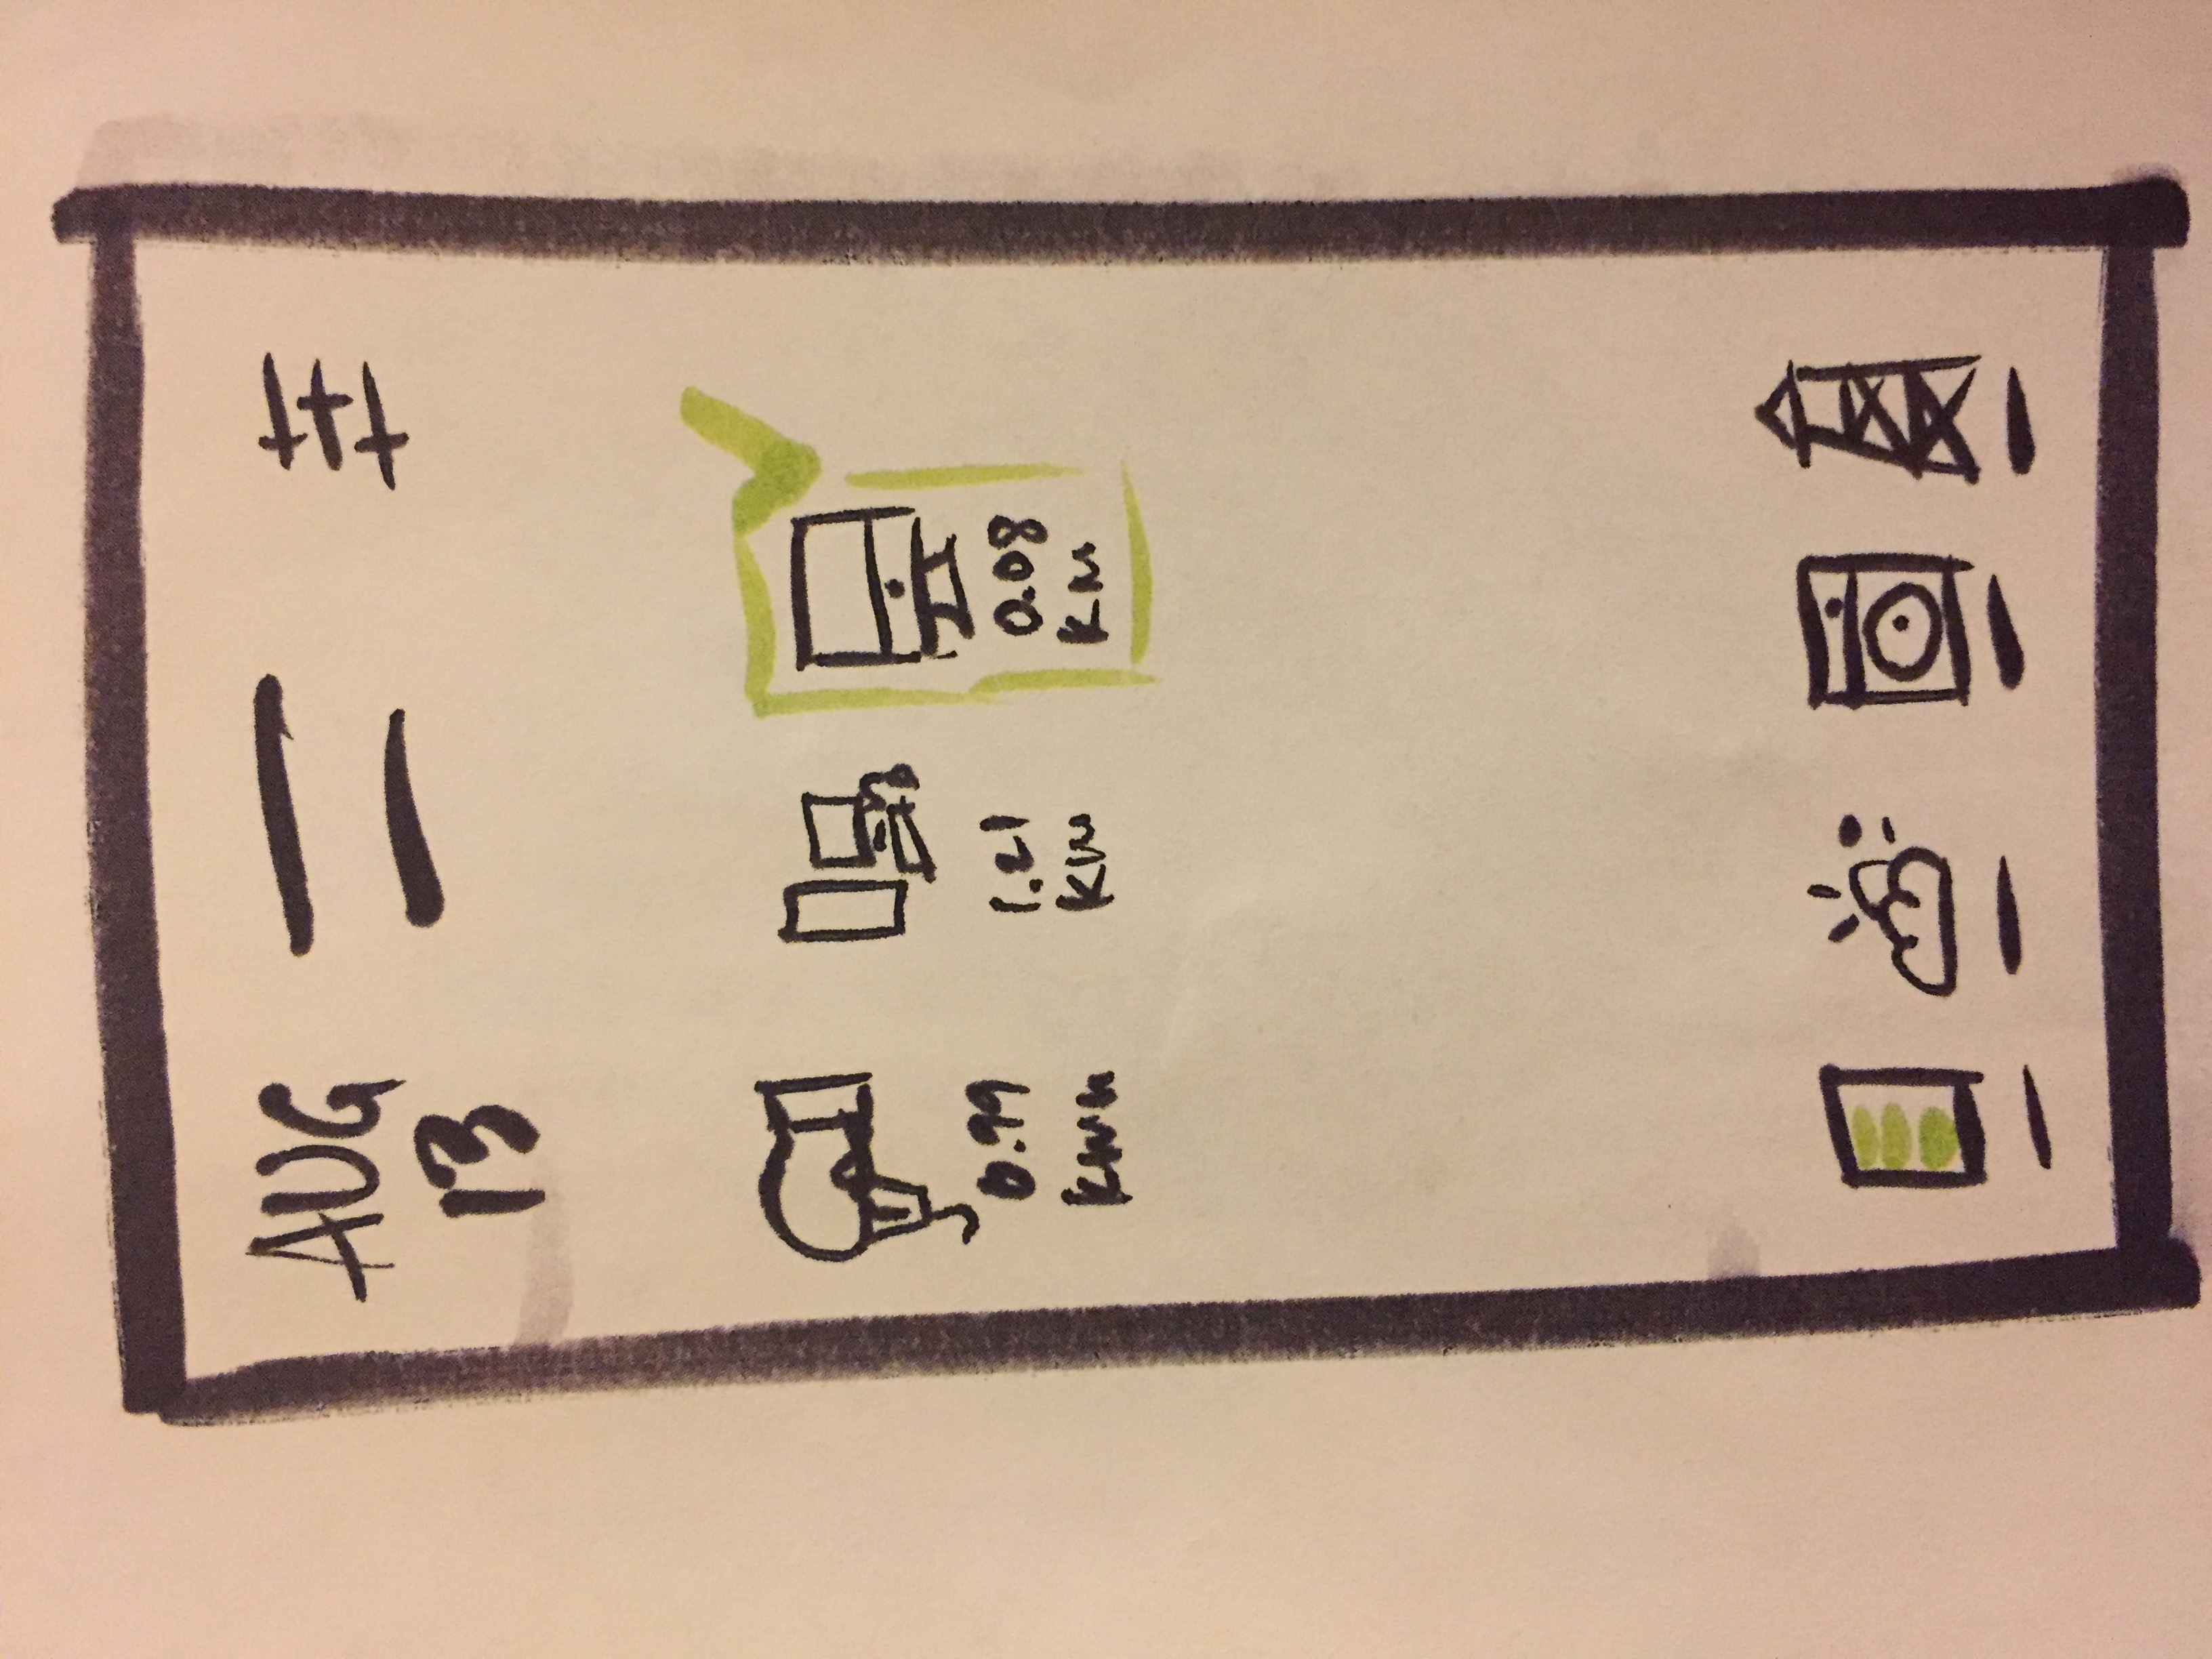 AUG
13
0.99
KWH
1.21
KW
0.08
KW